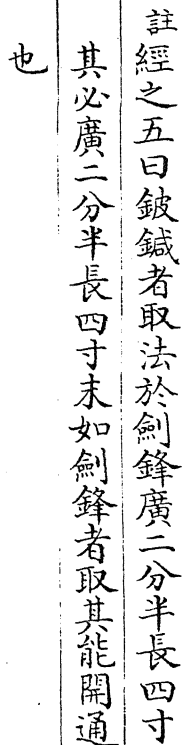 註經之五曰鈹鍼者取法於劍鋒廣二分半長四寸
其必廣二分半長四寸末如劍鋒者取其能開通
也